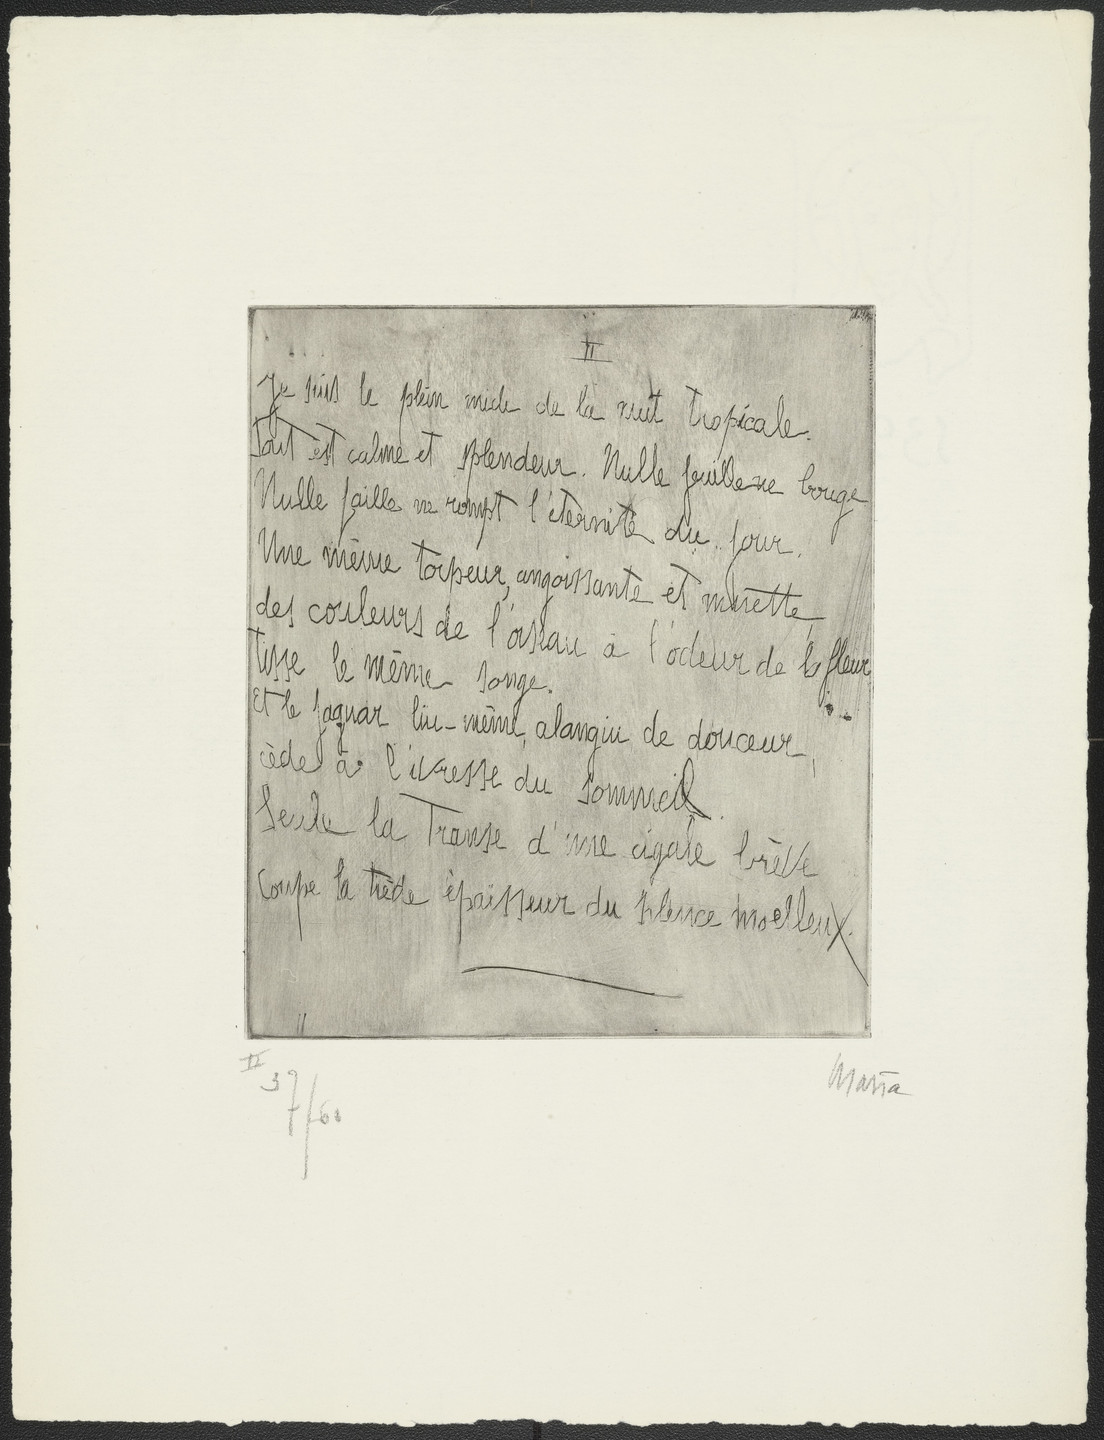 II
Je suis le plein midi de la nuit tropicale.
Tout est calme et splendeur. Nulle feuille ne bouge
Nulle faille ne rompt l'éternité du jour.
Une même torpeur, angoissante et muette,
des couleurs de l'oiseau à l'odeur de la fleur
tisse le même songe.
Et le jaguar lui-même, alangui de douceur,
cède à l'ivresse du sommeil.
Seule la Transe d'une cigale brève
coupe la tiède épaisseur du silence moelleux.
II
37/60
Maria